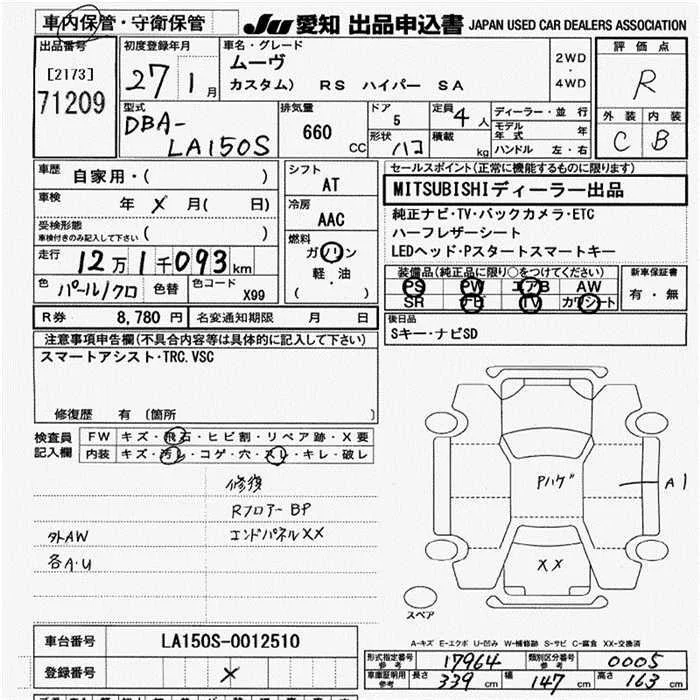 車内保管・守衛保管
JU 愛知 出品申込書 JAPAN USED CAR DEALERS ASSOCIATION
出品番号
[2173]
71209
初度登録年月
27 1月
車名・グレード
ムーヴ
カスタム） RS ハイパー SA
2WD
・
4WD
評価点
R
外装 内装
C B
型式
DBA-
LA150S
排気量
660
CC
ドア
5
形状 ハコ
定員 4人
積載 kg
ディーラー・並行
モデル年式 年
ハンドル 左・右
車歴
自家用・( )
車検 年 メ 月( 日)
受検形態
車検付きのみ記入して下さい ( )
走行 12万1千093km
色 パール/クロ 色替 色コード X99
シフト
AT
冷房
AAC
燃料
ガソリン
軽・油
( )
セールスポイント(正常に機能するものに限ります)
MITSUBISHIディーラー出品
純正ナビ・TV・バックカメラ・ETC
ハーフレザーシート
LEDヘッド・Pスタートスマートキー
装備品(純正品に限り○をつけてください)
PS PW エアB AW
SR ナビ TV カワシート
新車保証書
有・無
R券 8,780 円 名変通知期限 月 日
後日品
Sキー・ナビSD
注意事項申告欄(不具合内容等は具体的に記入して下さい)
スマートアシスト・TRC.VSC
修復歴 有 〔箇所
検査員
記入欄
FW キズ・飛石・ヒビ割・リペア跡・X要
内装 キズ・汚レ・コゲ・穴・スレ・キレ・破レ
修復
Rフロアー BP
外AW エンドパネルXX
各A・U
Pハゲ
A1
XX
スペア
A-キズ E-エクボ U-凹み W-補修跡 S-サビ C-腐食 XX-交換済
車台番号 LA150S-0012510
登録番号 メ
形式指定番号
参考 17964
類別区分番号
参考 0005
車庫証明用
参考 長さ 339 cm 幅 147 cm 高さ 163 cm